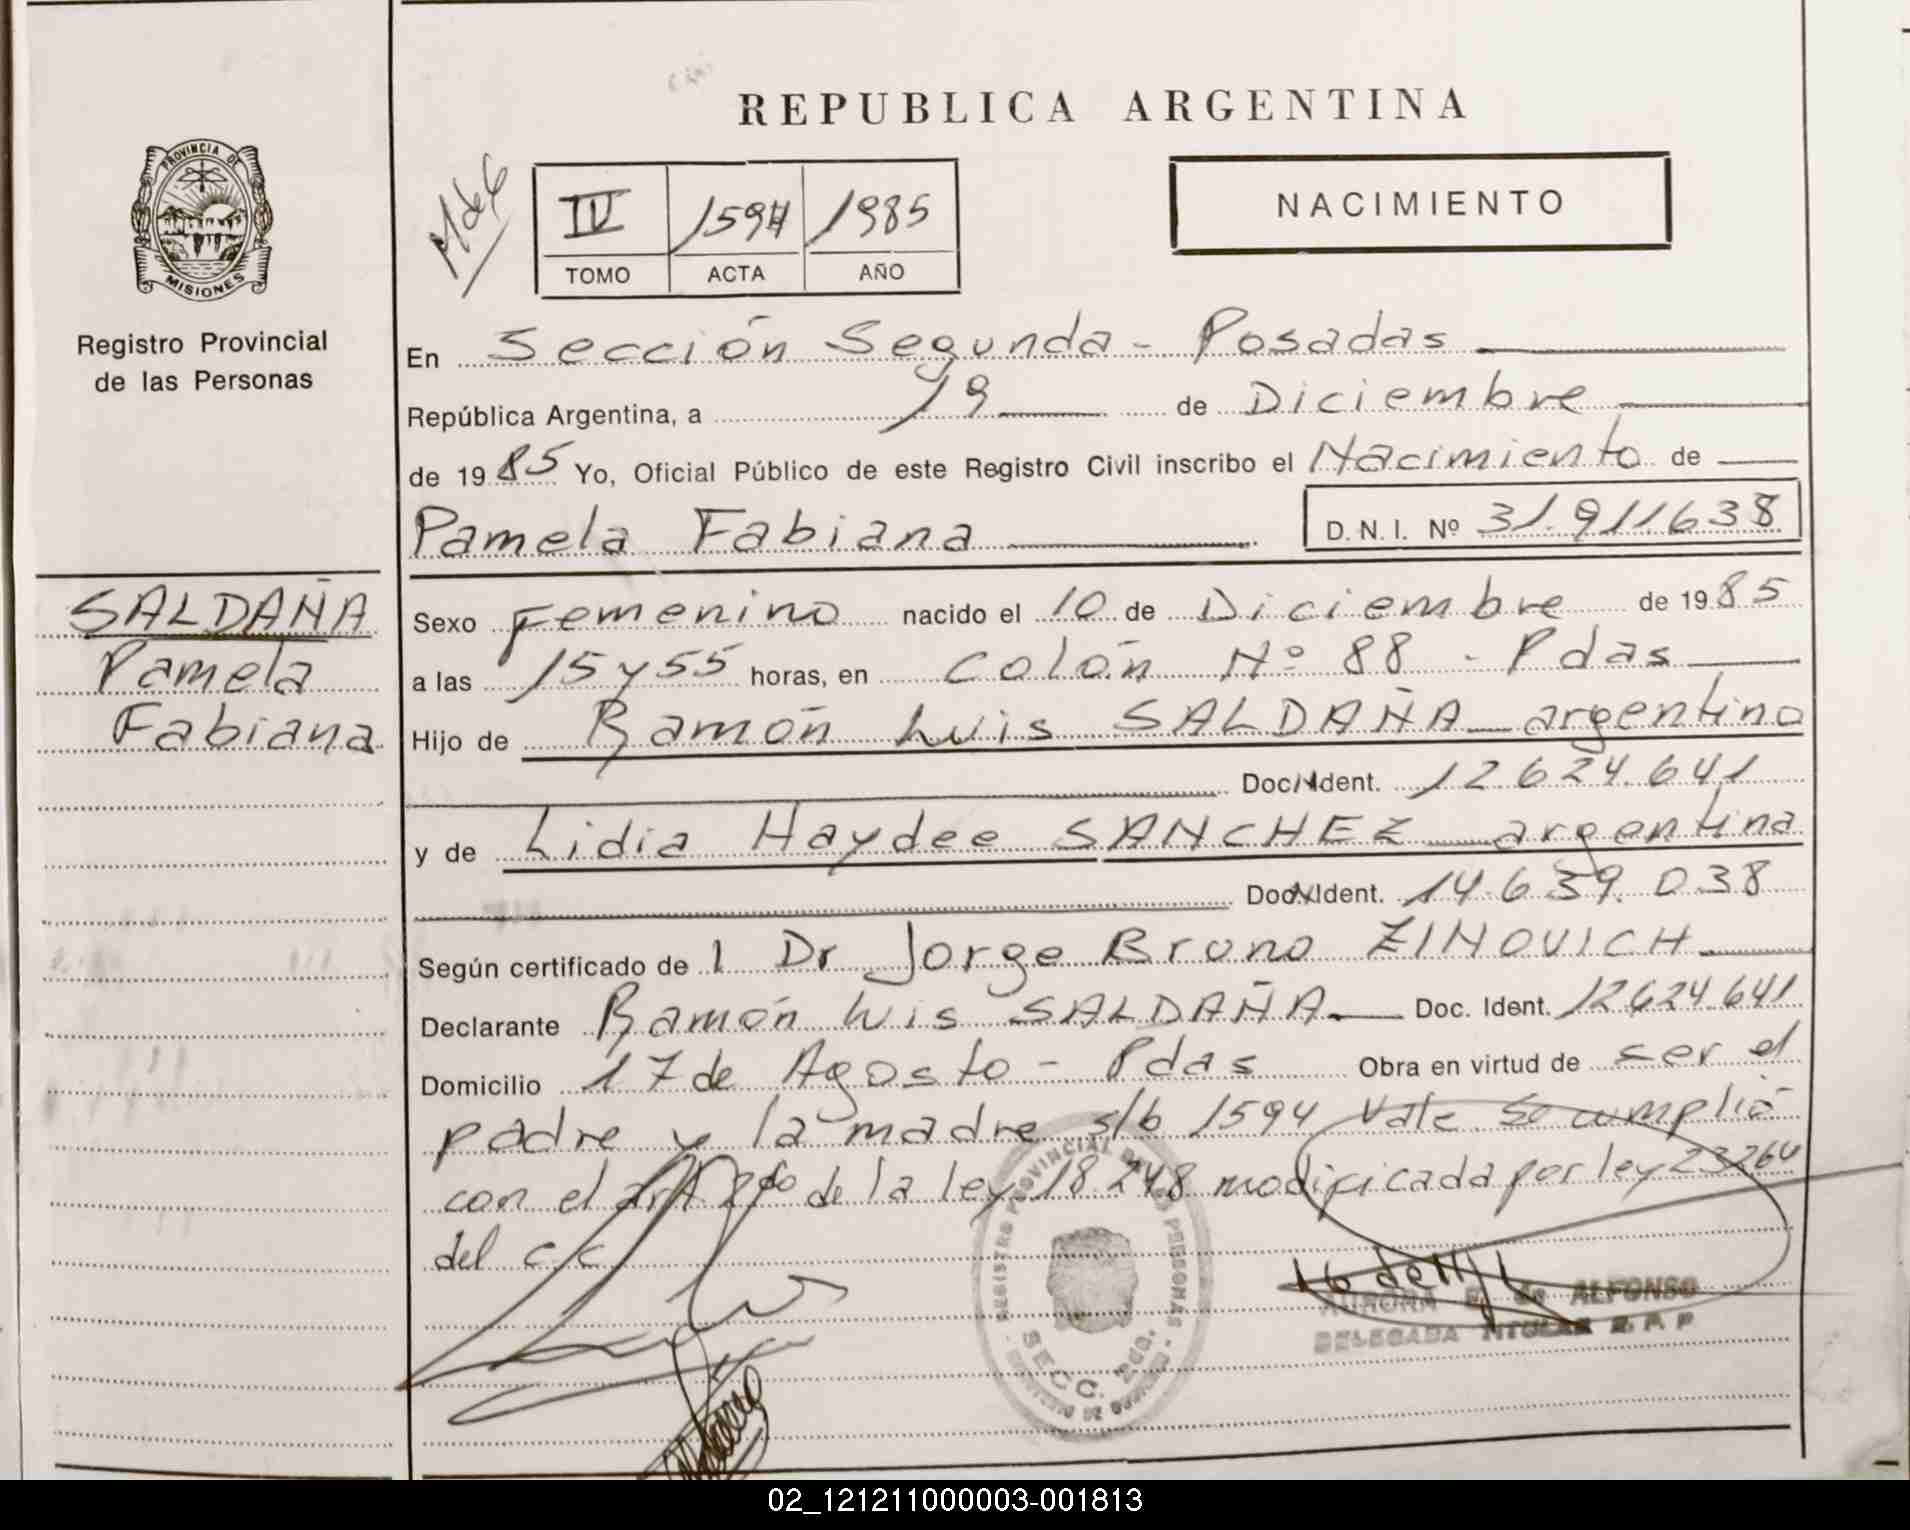 REPUBLICA ARGENTINA
PROVINCIA DE
MISIONES
Registro Provincial
de las Personas
M de 6
IV 1594 1985
TOMO ACTA AÑO
NACIMIENTO
En Sección Segunda - Posadas
República Argentina, a 19 de Diciembre
de 1985 Yo, Oficial Público de este Registro Civil inscribo el Nacimiento de
Pamela Fabiana D.N.I. Nº 31.911638
SALDAÑA
Pamela
Fabiana
Sexo Femenino nacido el 10 de Diciembre de 1985
a las 15 y 55 horas, en Colón Nº 88 - Pdas
Hijo de Ramón Luis SALDAÑA argentino
Doc. Ident. 12.624.641
y de Lidia Haydee SANCHEZ argentina
Doc. Ident. 14.639.038
Según certificado de l Dr Jorge Bruno ZINOVICH
Declarante Ramón Luis SALDAÑA Doc. Ident. 12624.641
Domicilio 17 de Agosto - Pdas Obra en virtud de ser el
padre y la madre s/b 1594 Vale Se cumplió
con el art 2do de la ley 18.248 modificada por ley 23264
del c.c.
REGISTRO PROVINCIAL DE LAS PERSONAS
SECC. 2da.
AURORA ALFONSO
DELEGADA TITULAR R. P. P.
02_121211000003-001813